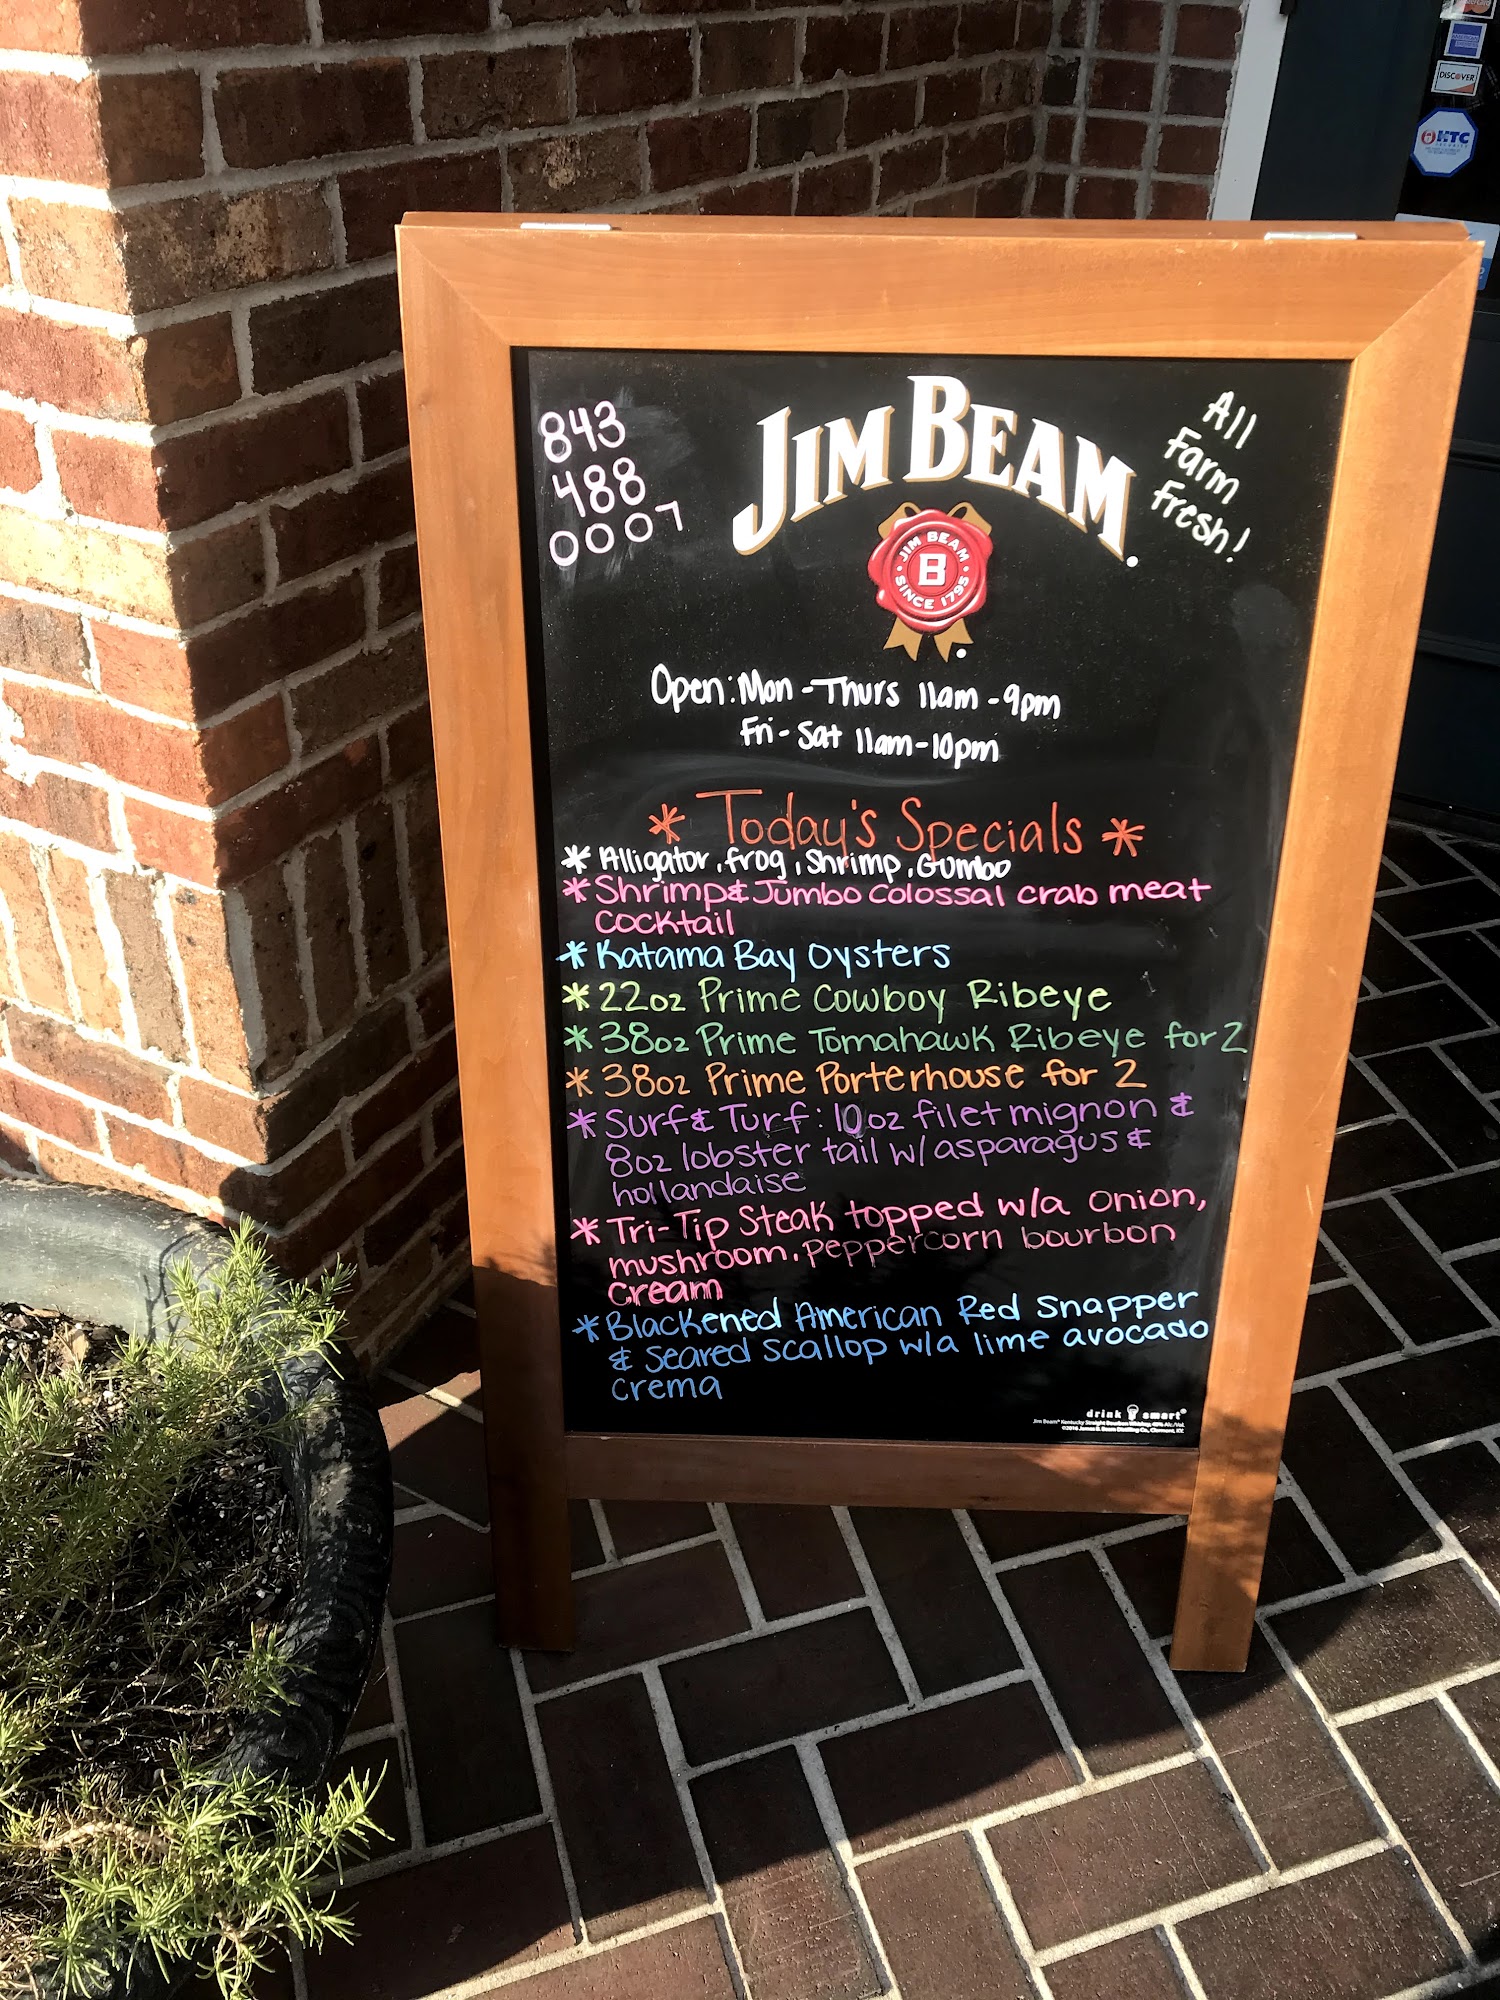 DISCOVER
HTC
SECURITY
843
488
0007
JIM BEAM
All
Farm
Fresh!
JIM BEAM
B
SINCE 1795
Open: Mon - Thurs 11am - 9pm
Fri - Sat 11am - 10pm
* Today's Specials *
* Alligator, frog, Shrimp, Gumbo
* Shrimp & Jumbo Colossal crab meat
cocktail
* Katama Bay Oysters
* 22oz Prime Cowboy Ribeye
* 38oz Prime Tomahawk Ribeye for 2
* 38oz Prime Porterhouse for 2
* Surf & Turf: 10oz filet mignon &
8oz lobster tail w/ asparagus &
hollandaise
* Tri-Tip Steak topped w/a onion,
mushroom, peppercorn bourbon
cream
* Blackened American Red Snapper
& seared scallop w/a lime avocado
crema
drink smart®
Jim Beam® Kentucky Straight Bourbon Whiskey, 40% Alc./Vol.
©2016 James B. Beam Distilling Co., Clermont, KY.